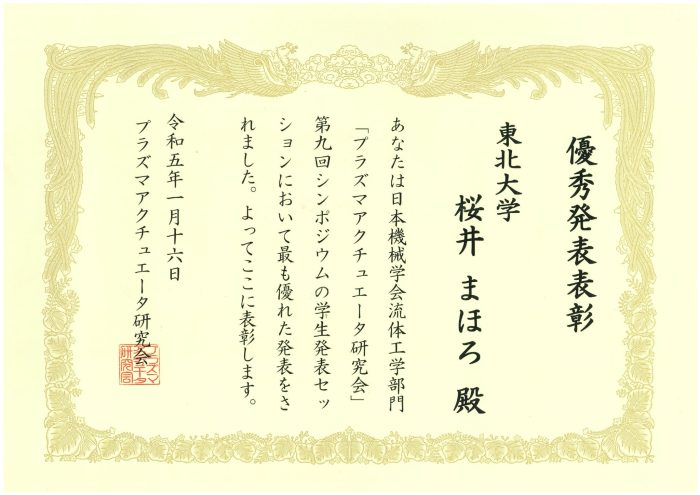 優秀発表表彰
東北大学
桜井 まほろ 殿
あなたは日本機械学会流体工学部門
「プラズマアクチュエータ研究会」
第九回シンポジウムの学生発表セッ
ションにおいて最も優れた発表をさ
れました。よってここに表彰します。
令和五年一月十六日
プラズマアクチュエータ研究会
プラズマ
アクチュエータ
研究会